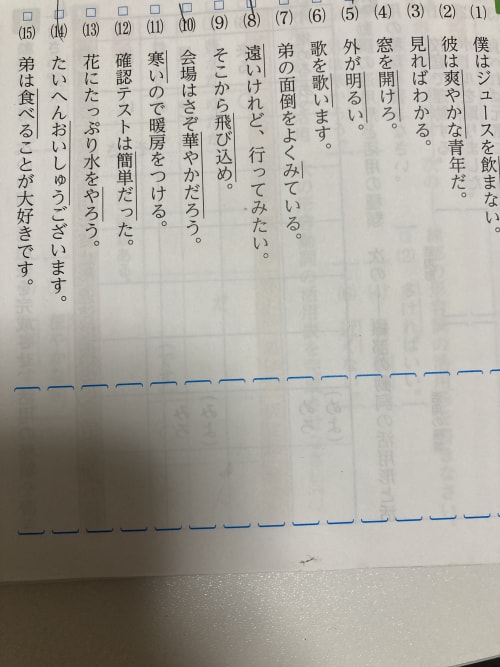 (1) 僕はジュースを飲まない。
(2) 彼は爽やかな青年だ。
(3) 見ればわかる。
(4) 窓を開けろ。
(5) 外が明るい。
(6) 歌を歌います。
(7) 弟の面倒をよくみている。
(8) 遠いけれど、行ってみたい。
(9) そこから飛び込め。
(10) 会場はさぞ華やかだろう。
(11) 寒いので暖房をつける。
(12) 確認テストは簡単だった。
(13) 花にたっぷり水をやろう。
(14) たいへんおいしゅうございます。
(15) 弟は食べることが大好きです。